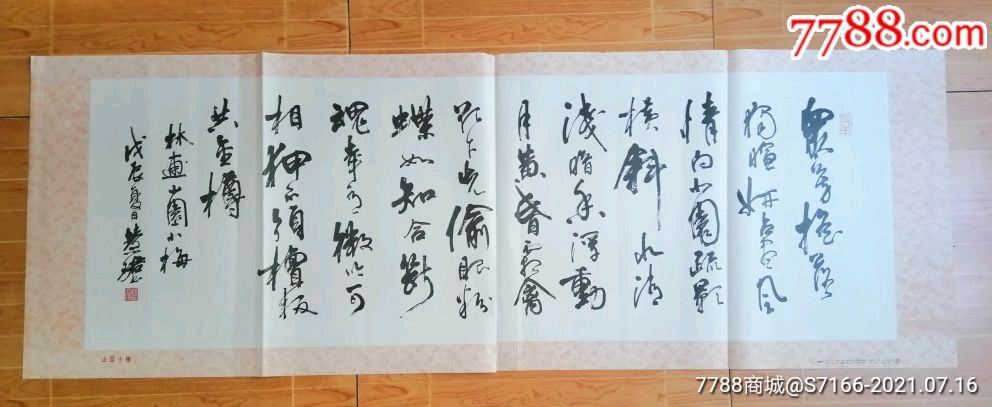 7788.com
眾芳摇落
獨暄妍占尽風
情向小園疏影
橫斜水清
淺暗香浮動
月黄昏霜禽
欲下先偷眼粉
蝶如知合断
魂幸有微吟可
相狎不须檀板
共金樽
林逋山園小梅
戊辰夏日
山园小梅
7788商城@S7166-2021.07.16